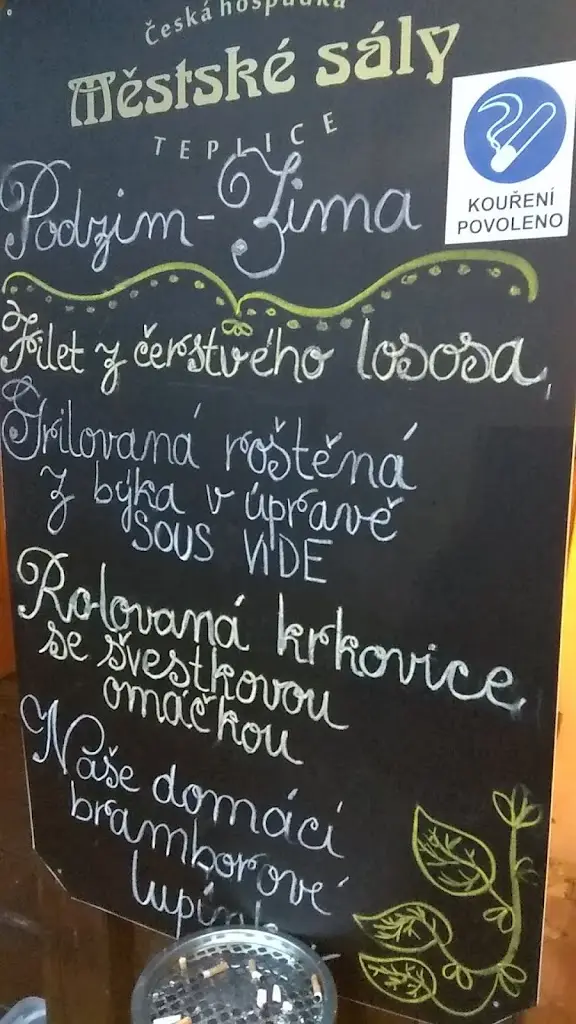 Česká hospůdka
Městské sály
TEPLICE
KOUŘENÍ
POVOLENO
Podzim - Zima
Filet z čerstvého lososa,
Grilovaná roštěná
z býka v úpravě
SOUS VIDE
Rolovaná krkovice
se švestkovou
omáčkou
Naše domácí
bramborové